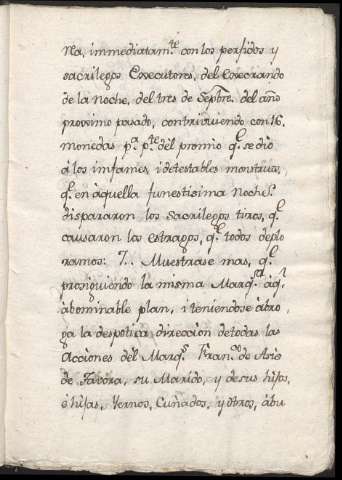 lla, immediatam.te con los perfidos y
sacrilegos Cosecutores, del Cosecrando
de la Noche, del tres de Septre. del año
proximo pasado, contriviuiendo con 16.
monedas p.a p.te del premio q.e se dio
à los infames, i detestables monstruos,
q.e en àquella funestissima Noche,
dispararon los sacrilegos tiros, q.e
causaron los estragos, q.e todos deplo
ramos: 7.. Muestrase mas, q.e
prosiguiendo la misma Marq.sa àq.l
àbominable plan, i teniendose àbro,
ga la despotica direccion detodas las
Acciones del Marq.s Fran.co de Asis
de Tavora, su Marido, y desus hijos,
è hijas, Yernos, Cuñados, y otros, àbu